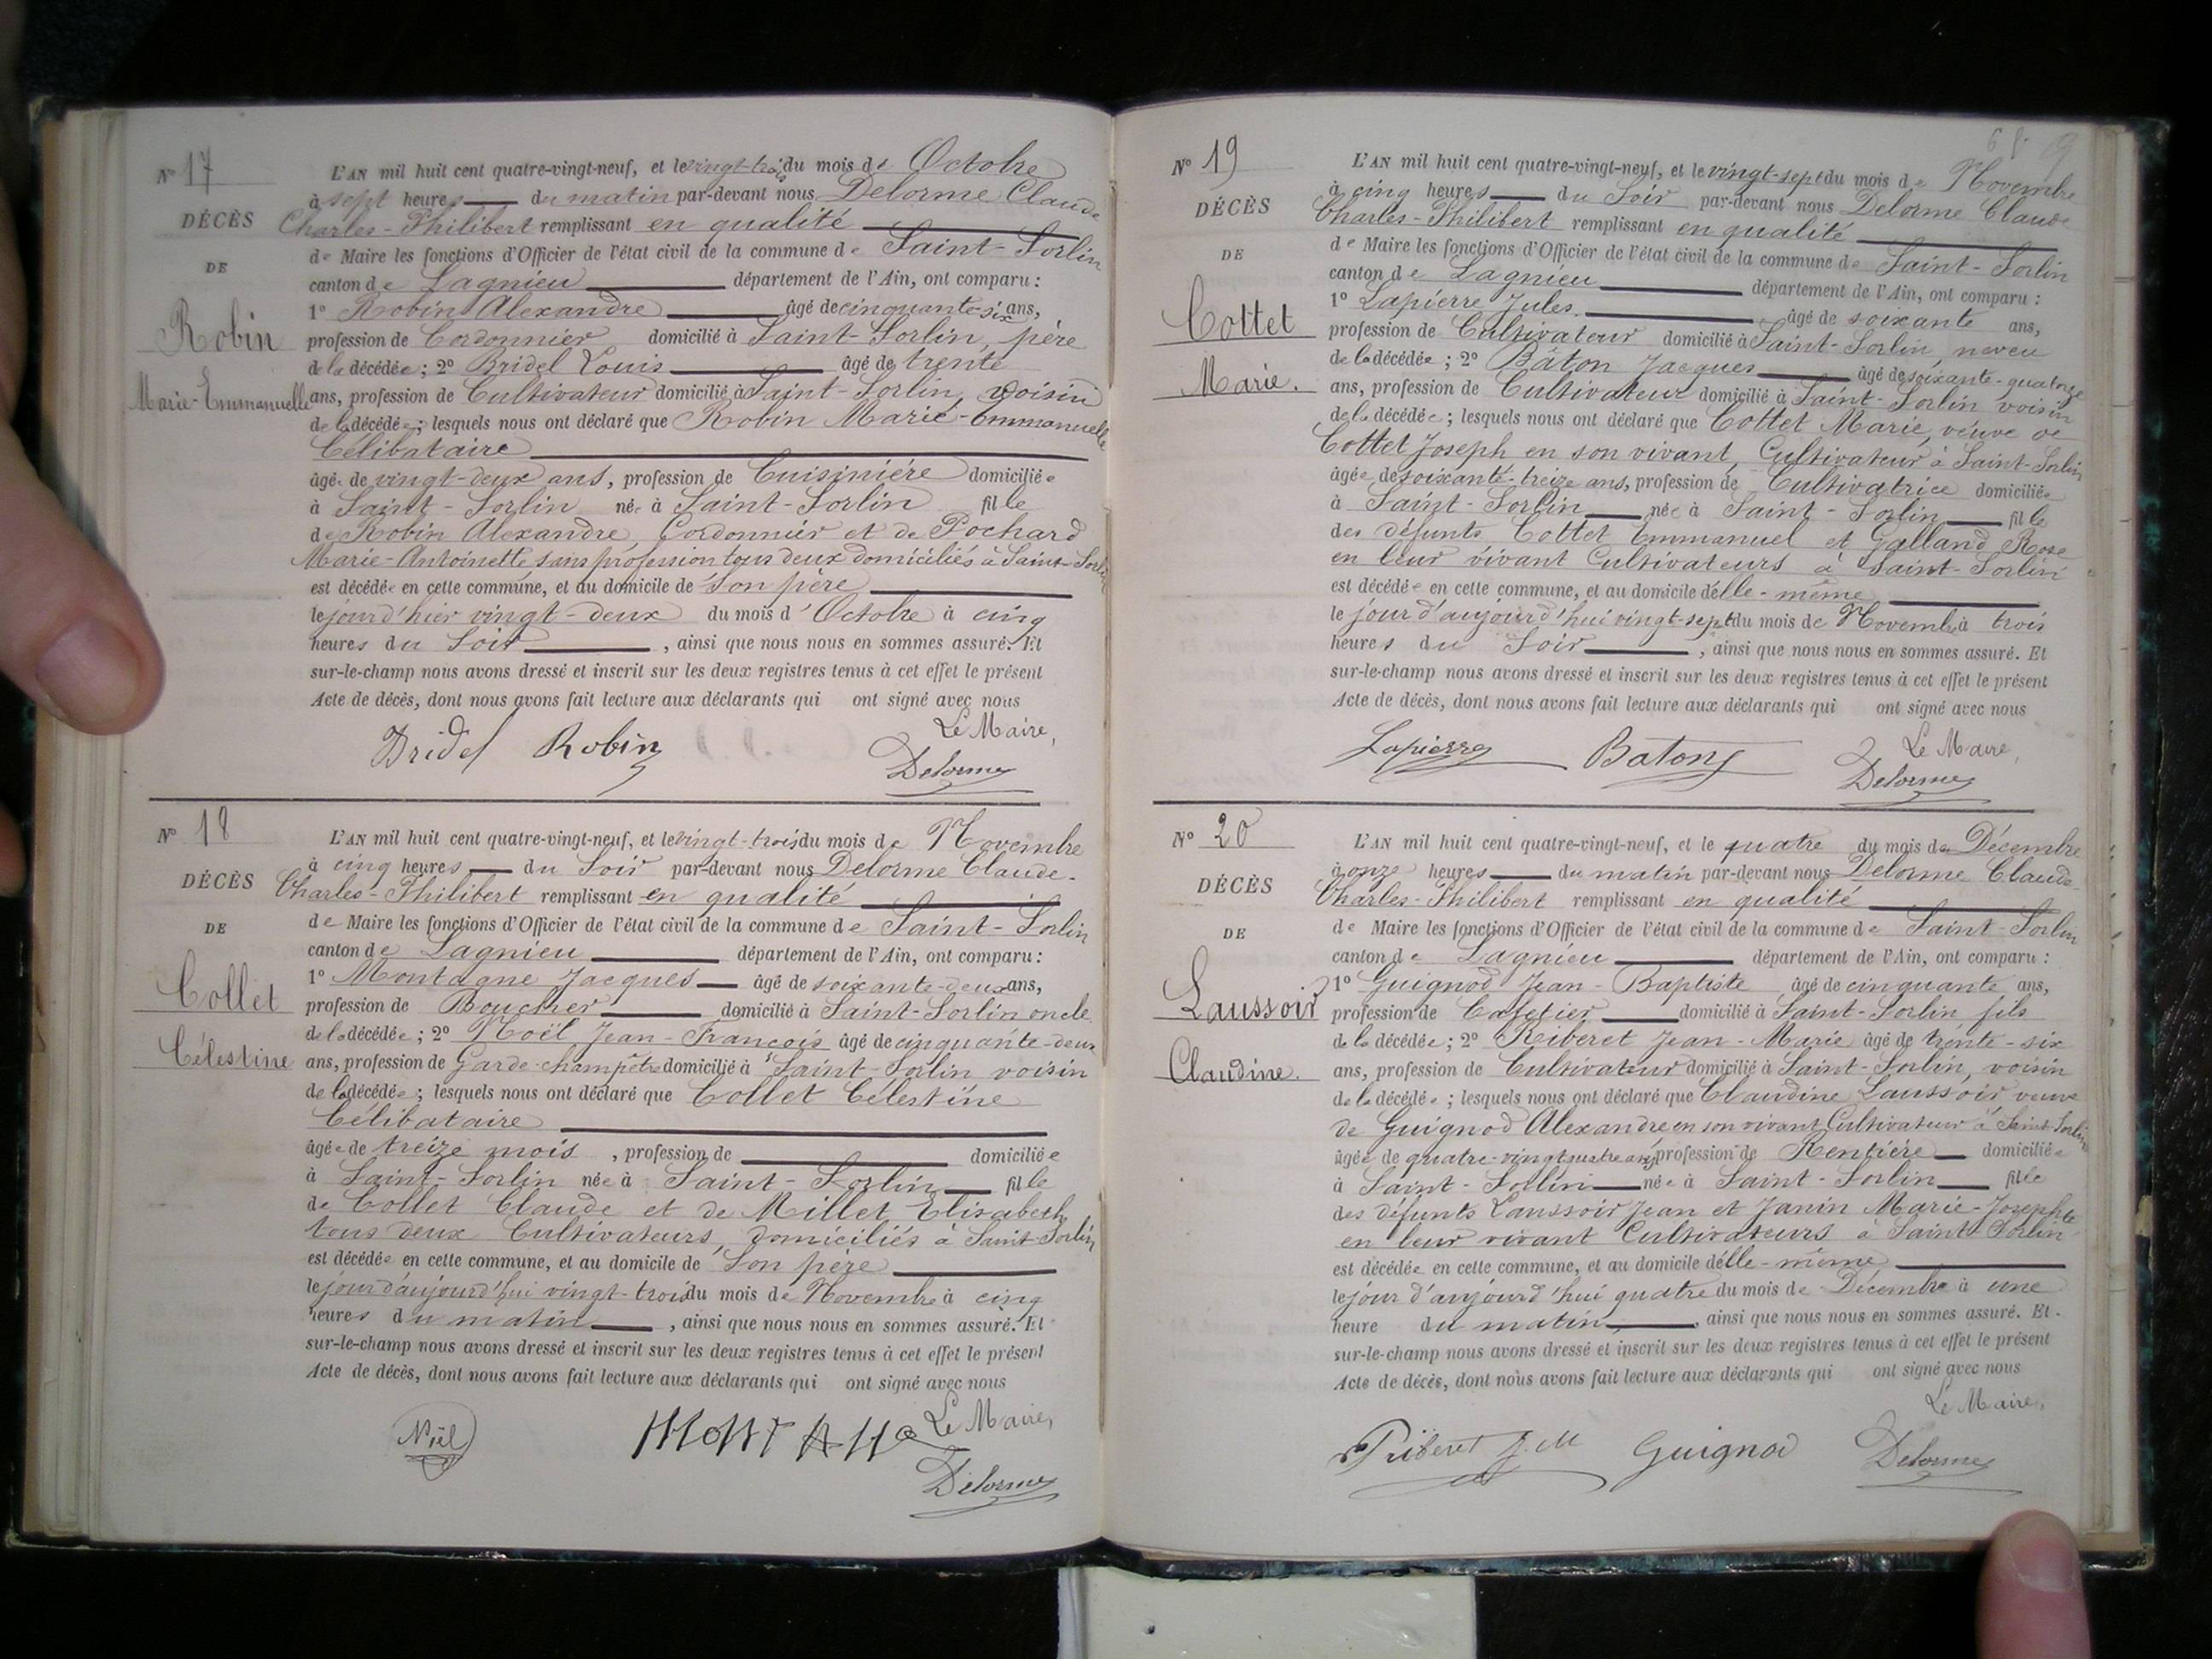 N° 17
DÉCÈS
DE
Robin
Marie-Emmanuelle
L'AN mil huit cent quatre-vingt-neuf, et le vingt-trois du mois de Octobre
à sept heures du matin par-devant nous Delorme Claude
Charles-Philibert remplissant en qualité
de Maire les fonctions d'Officier de l'état civil de la commune de Saint-Sorlin
canton de Lagnieu département de l'Ain, ont comparu :
1° Robin Alexandre âgé de cinquante-six ans,
profession de Cordonnier domicilié à Saint-Sorlin, père
de la décédée ; 2° Bridel Louis âgé de trente
ans, profession de Cultivateur domicilié à Saint-Sorlin, voisin
de la décédée ; lesquels nous ont déclaré que Robin Marie-Emmanuelle
Célibataire
âgée de vingt-deux ans, profession de Cuisinière domiciliée
à Saint-Sorlin née à Saint-Sorlin fille
de Robin Alexandre, Cordonnier et de Pochard
Marie-Antoinette sans profession tous deux domiciliés à Saint-Sorlin
est décédée en cette commune, et au domicile de son père
le jour d'hier vingt-deux du mois d'Octobre à cinq
heures du Soir, ainsi que nous nous en sommes assuré. Et
sur-le-champ nous avons dressé et inscrit sur les deux registres tenus à cet effet le présent
Acte de décès, dont nous avons fait lecture aux déclarants qui ont signé avec nous
Le Maire,
Bridel Robin Delorme
N° 18
DÉCÈS
DE
Collet
Célestine
L'AN mil huit cent quatre-vingt-neuf, et le vingt-trois du mois de Novembre
à cinq heures du Soir par-devant nous Delorme Claude-
Charles-Philibert remplissant en qualité
de Maire les fonctions d'Officier de l'état civil de la commune de Saint-Sorlin
canton de Lagnieu département de l'Ain, ont comparu :
1° Montagne Jacques âgé de soixante-deux ans,
profession de Boucher domicilié à Saint-Sorlin oncle
de la décédée ; 2° Noël Jean-François âgé de cinquante-deux
ans, profession de Garde-champêtre domicilié à Saint-Sorlin voisin
de la décédée ; lesquels nous ont déclaré que Collet Célestine
Célibataire
âgée de treize mois, profession de domiciliée
à Saint-Sorlin née à Saint-Sorlin fille
de Collet Claude et de Millet Elisabeth
tous deux Cultivateurs, domiciliés à Saint-Sorlin
est décédée en cette commune, et au domicile de Son père
le jour d'aujourd'hui vingt-trois du mois de Novembre à cinq
heures du matin, ainsi que nous nous en sommes assuré. Et
sur-le-champ nous avons dressé et inscrit sur les deux registres tenus à cet effet le présent
Acte de décès, dont nous avons fait lecture aux déclarants qui ont signé avec nous
Le Maire,
Delorme
N° 19
DÉCÈS
DE
Cottet
Marie.
L'AN mil huit cent quatre-vingt-neuf, et le vingt-sept du mois de Novembre
à cinq heures du Soir par-devant nous Delorme Claude
Charles-Philibert remplissant en qualité
de Maire les fonctions d'Officier de l'état civil de la commune de Saint-Sorlin
canton de Lagnieu département de l'Ain, ont comparu :
1° Lapierre Jules. âgé de soixante ans,
profession de Cultivateur domicilié à Saint-Sorlin, neveu
de la décédée ; 2° Bâton Jacques âgé de soixante-quatorze
ans, profession de Cultivateur domicilié à Saint-Sorlin voisin
de la décédée ; lesquels nous ont déclaré que Cottet Marie, veuve de
Cottet Joseph en son vivant, Cultivateur à Saint-Sorlin
âgée de soixante-treize ans, profession de Cultivatrice domiciliée
à Saint-Sorlin née à Saint-Sorlin fille
des défunts Cottet Emmanuel et Galland Rose
en leur vivant Cultivateurs à Saint-Sorlin
est décédée en cette commune, et au domicile d'elle-même
le jour d'aujourd'hui vingt-sept du mois de Novembre à trois
heures du Soir, ainsi que nous nous en sommes assuré. Et
sur-le-champ nous avons dressé et inscrit sur les deux registres tenus à cet effet le présent
Acte de décès, dont nous avons fait lecture aux déclarants qui ont signé avec nous
Le Maire,
Lapierre Baton Delorme
N° 20
DÉCÈS
DE
Laussoir
Claudine.
L'AN mil huit cent quatre-vingt-neuf, et le quatre du mois de Décembre
à onze heures du matin par-devant nous Delorme Claude-
Charles-Philibert remplissant en qualité
de Maire les fonctions d'Officier de l'état civil de la commune de Saint-Sorlin
canton de Lagnieu département de l'Ain, ont comparu :
1° Guignod Jean-Baptiste âgé de cinquante ans,
profession de Cafetier domicilié à Saint-Sorlin fils
de la décédée ; 2° Riberet Jean-Marie âgé de trente-six
ans, profession de Cultivateur domicilié à Saint-Sorlin, voisin
de la décédée ; lesquels nous ont déclaré que Claudine Laussoir veuve
de Guignod Alexandre en son vivant Cultivateur à Saint-Sorlin
âgée de quatre-vingt quatre ans, profession de Rentière domiciliée
à Saint-Sorlin née à Saint-Sorlin fille
des défunts Laussoir Jean et Janin Marie-Josephte
en leur vivant Cultivateurs à Saint-Sorlin
est décédée en cette commune, et au domicile d'elle-même
le jour d'aujourd'hui quatre du mois de Décembre à une
heure du matin, ainsi que nous nous en sommes assuré. Et
sur-le-champ nous avons dressé et inscrit sur les deux registres tenus à cet effet le présent
Acte de décès, dont nous avons fait lecture aux déclarants qui ont signé avec nous
Le Maire,
Riberet J. M Guignod Delorme